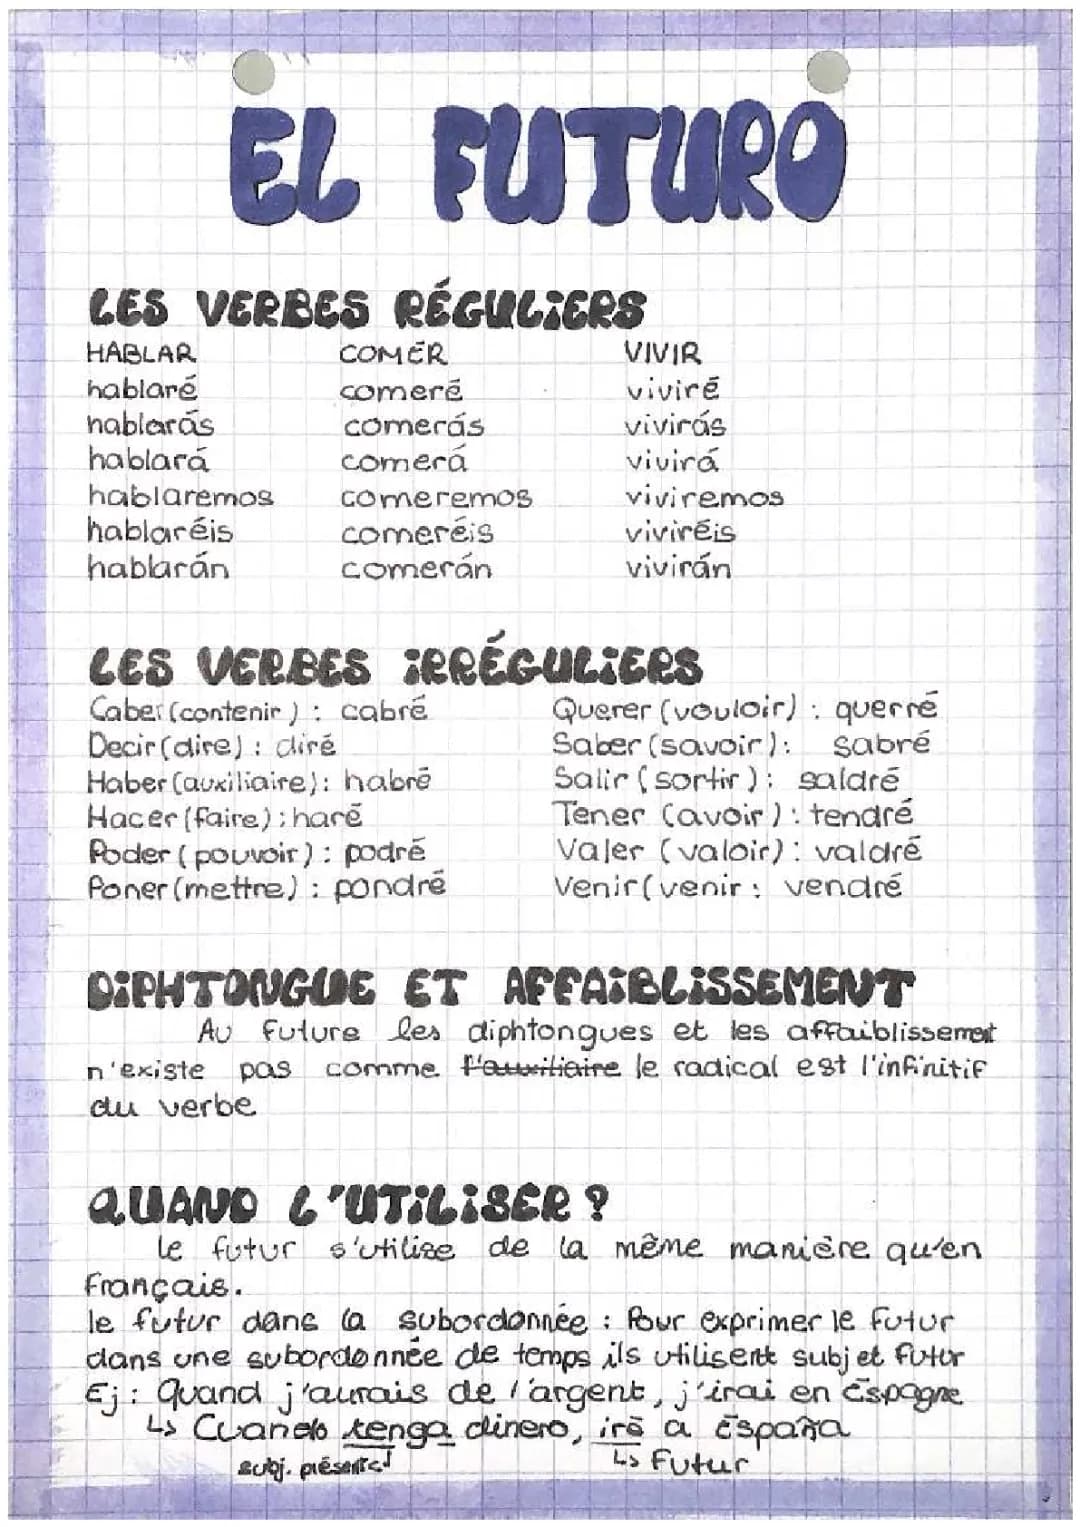 EL FUTURO
LES VERBES RÉGULIERS
HABLAR COMER VIVIR
hablaré comeré viviré
hablarás comerás vivirás
hablará comerá vivirá
hablaremos comeremos viviremos
hablaréis comeréis viviréis
hablarán comerán vivirán
LES VERBES IRRÉGULIERS
Caber (contenir) : cabré Querer (vouloir) : querré
Decir (dire) : diré Saber (savoir) : sabré
Haber (auxiliaire) : habré Salir (sortir) : saldré
Hacer (faire) : haré Tener (avoir) : tendré
Poder (pouvoir) : podré Valer (valoir) : valdré
Poner (mettre) : pondré Venir (venir : vendré
DIPHTONGUE ET AFFAIBLISSEMENT
Au future les diphtongues et les affaiblissement
n'existe pas comme l'auxiliaire le radical est l'infinitif
du verbe
QUAND L'UTILISER ?
le futur s'utilise de la même manière qu'en
Français.
le futur dans la subordonnée : Pour exprimer le futur
dans une subordonnée de temps ils utilisent subj et futur
Ej : Quand j'aurais de l'argent, j'irai en Espagne
↳ Cuando tenga dinero, iré a España
subj. présent ↳ Futur